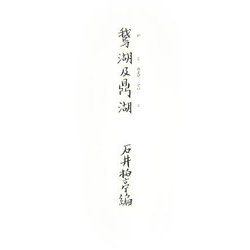 鵞湖及鼎湖
石井柏亭編